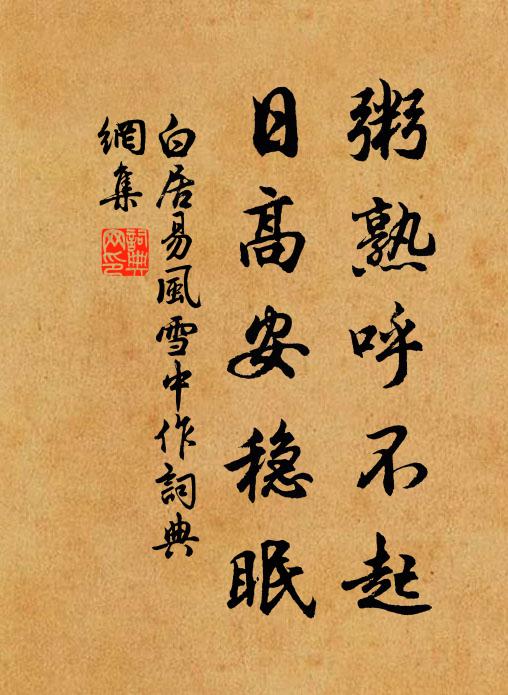 粥熟呼不起
日高安稳眠
白居易風雪中作詞典
網集
詞典網印